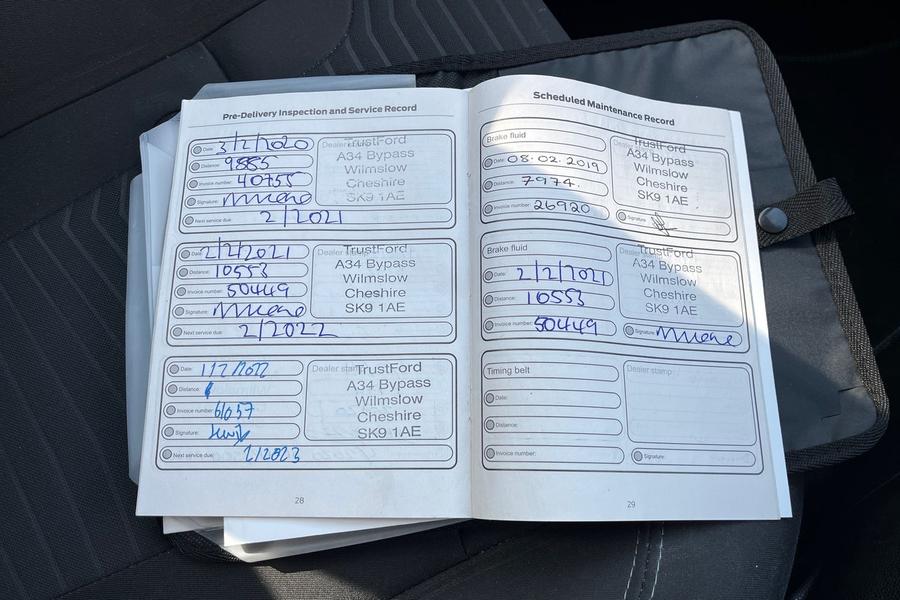 Pre-Delivery Inspection and Service Record
Date: 3/2/2020
Distance: 9885
Invoice number: 40755
Signature:
Next service due: 2/2021
TrustFord
A34 Bypass
Wilmslow
Cheshire
SK9 1AE
Date: 2/2/2021
Distance: 10553
Invoice number: 50449
Signature:
Next service due: 2/2022
TrustFord
A34 Bypass
Wilmslow
Cheshire
SK9 1AE
Date: 1/2/2022
Distance:
Invoice number: 61057
Signature:
Next service due: 2/2023
Dealer stamp:
TrustFord
A34 Bypass
Wilmslow
Cheshire
SK9 1AE
28
Scheduled Maintenance Record
Brake fluid
Date: 08.02.2019
Distance: 7974.
Invoice number: 26920
TrustFord
A34 Bypass
Wilmslow
Cheshire
SK9 1AE
Signature:
Brake fluid
Date: 2/2/2021
Distance: 10553
Invoice number: 50449
TrustFord
A34 Bypass
Wilmslow
Cheshire
SK9 1AE
Signature:
Timing belt
Date:
Distance:
Invoice number:
Dealer stamp:
Signature:
29